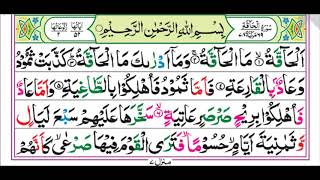 سورة الحاقة
بِسْمِ اللهِ الرَّحْمٰنِ الرَّحِيْمِ
اَلْحَآقَّةُ ۙ مَا الْحَآقَّةُ ۚ وَمَاۤ اَدْرٰىكَ مَا الْحَآقَّةُ ؕ كَذَّبَتْ ثَمُوْدُ
وَعَادٌۢ بِالْقَارِعَةِ فَاَمَّا ثَمُوْدُ فَاُهْلِكُوْا بِالطَّاغِيَةِ وَاَمَّا عَادٌ
فَاُهْلِكُوْا بِرِيْحٍ صَرْصَرٍ عَاتِيَةٍ ۙ سَخَّرَهَا عَلَيْهِمْ سَبْعَ لَيَالٍ
وَّثَمٰنِيَةَ اَيَّامٍ ۙ حُسُوْمًا ۙ فَتَرَى الْقَوْمَ فِيْهَا صَرْعٰى ۙ كَاَنَّهُمْ
منزل ٧